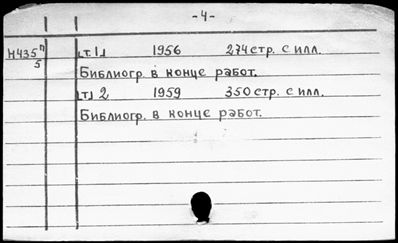 -4-
Н435п [т. 1] 1956 274 стр. с илл.
5
Библиогр. в конце работ.
[т] 2 1959 350 стр. с илл.
Библиогр. в конце работ.